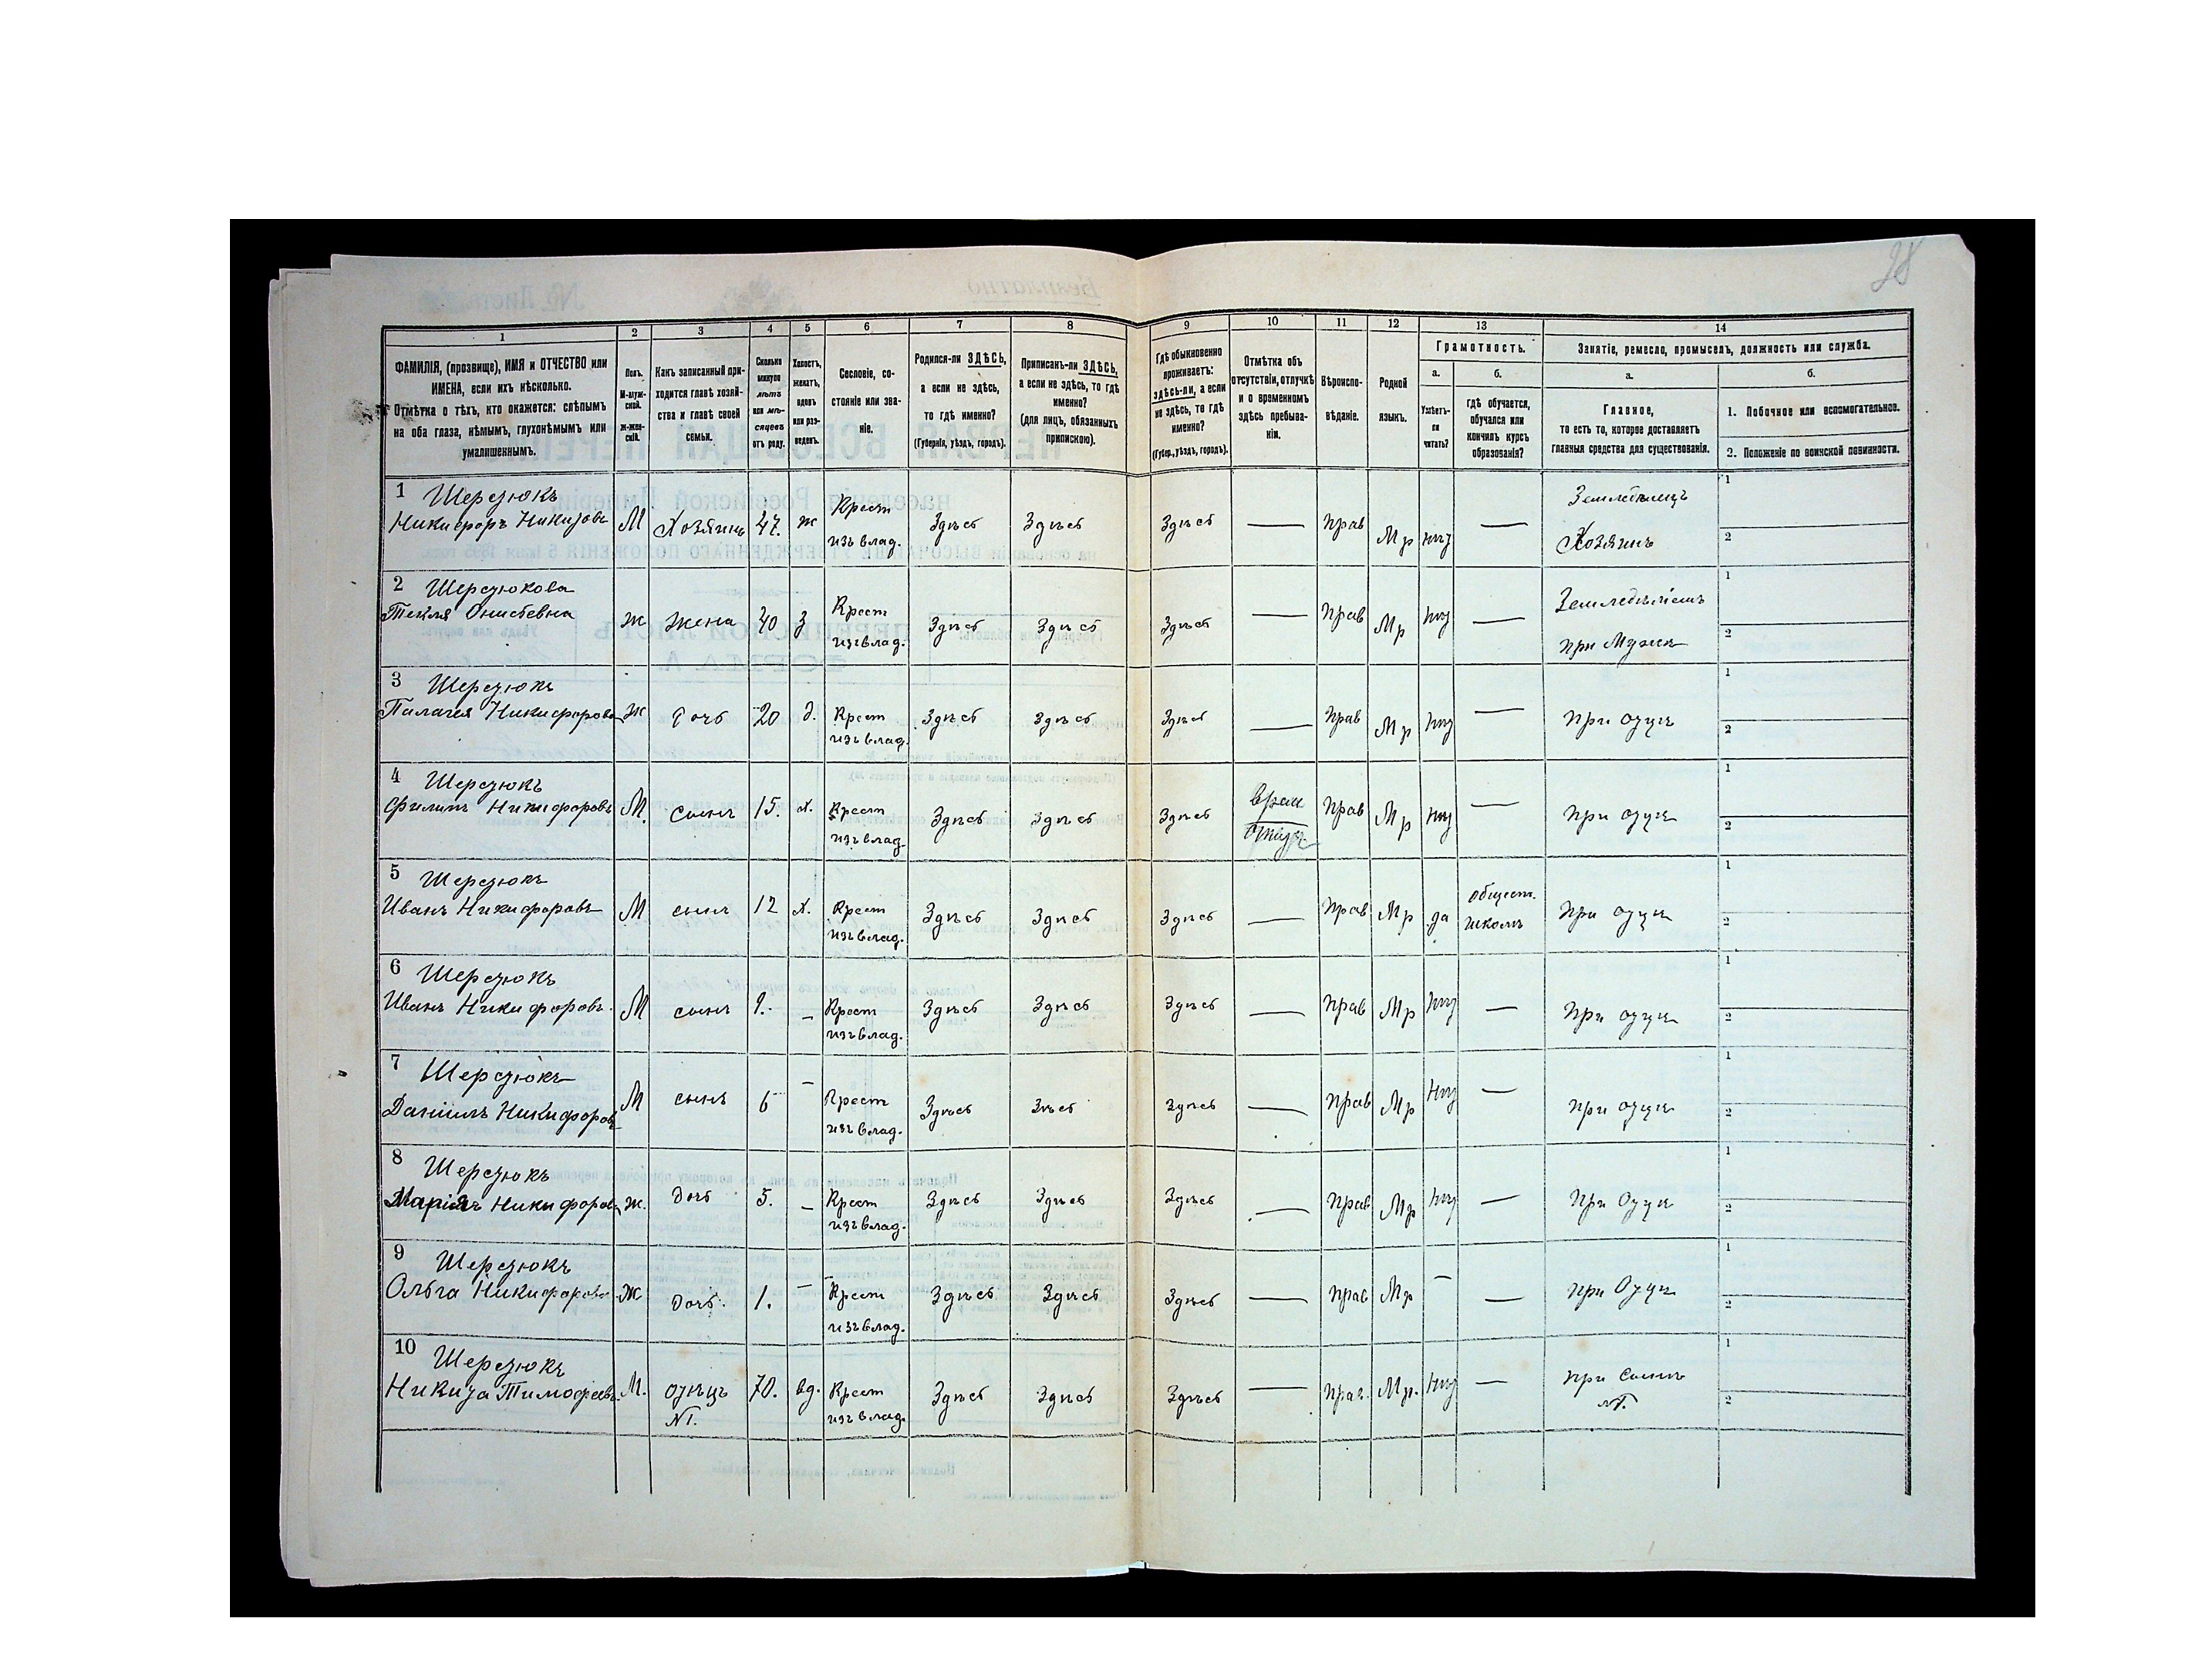 98
1 2 3 4 5 6 7 8 9 10 11 12 13 14
ФАМИЛІЯ, (прозвище), ИМЯ и ОТЧЕСТВО или
ИМЕНА, если ихъ нѣсколько.
Отмѣтка о тѣхъ, кто окажется: слѣпымъ
на оба глаза, нѣмымъ, глухонѣмымъ или
умалишеннымъ.
Полъ.
М-муж-
ской.
Ж-жен-
скій.
Какъ записанный при-
ходится главѣ хозяй-
ства и главѣ своей
семьи.
Сколько
минуло
лѣтъ
или мѣ-
сяцевъ
отъ роду.
Холостъ,
женатъ,
вдовъ
или раз-
веденъ.
Сословіе, со-
стояніе или зва-
ніе.
Родился-ли ЗДѢСЬ,
а если не здѣсь,
то гдѣ именно?
(Губернія, уѣздъ, городъ).
Приписанъ-ли ЗДѢСЬ,
а если не здѣсь, то гдѣ
именно?
(для лицъ, обязанныхъ
припискою).
Гдѣ обыкновенно
проживаетъ:
здѣсь-ли, а если
не здѣсь, то гдѣ
именно?
(Губер., уѣздъ, городъ).
Отмѣтка объ
отсутствіи, отлучкѣ
и о временномъ
здѣсь пребыва-
ніи.
Вѣроиспо-
вѣданіе.
Родной
языкъ.
Грамотность.
а.
Умѣетъ-
ли
читать?
б.
гдѣ обучается,
обучался или
кончилъ курсъ
образованія?
Занятіе, ремесло, промыселъ, должность или служба.
а.
Главное,
то есть то, которое доставляетъ
главныя средства для существованія.
б.
1. Побочное или вспомогательное.
2. Положеніе по воинской повинности.
1 Шерстюкъ Землѣдѣлецъ 1
Никифоръ Никитовъ М Хозяинъ 47. ж Крест Здѣсь Здѣсь Здѣсь — Прав Мр нѣт —
изъ влад. Хозяинъ 2
2 Шерстюкова 1
Текля Онисьевна ж жена 40 з Крест Здѣсь Здѣсь Здѣсь — Прав Мр нѣт — Земледѣліемъ
изъ влад. при Мужѣ 2
3 Шерстюкъ 1
Палагея Никифорова ж дочь 20 д. Крест Здѣсь Здѣсь Здѣсь — Прав Мр нѣт — при отцѣ
изъ влад. 2
4 Шерстюкъ 1
Филипъ Никифоровъ М. сынъ 15. х. Крест Здѣсь Здѣсь Здѣсь Прав Мр нѣт — при отцѣ
изъ влад. 2
5 Шерстюкъ общест. 1
Иванъ Никифоровъ М сынъ 12 х. Крест Здѣсь Здѣсь Здѣсь — Прав Мр да школѣ при отцѣ
изъ влад. 2
6 Шерстюкъ 1
Иванъ Никифоровъ. М сынъ 9. – Крест Здѣсь Здѣсь Здѣсь — Прав Мр нѣт — при отцѣ
изъ влад. 2
7 Шерстюкъ 1
Даніилъ Никифоровъ М сынъ 6 – Крест Здѣсь Зѣсь Здѣсь — Прав Мр Нѣт — при отцѣ
изъ влад. 2
8 Шерстюкъ 1
Марія Никифорова ж. Дочь 5. – Крест Здѣсь Здѣсь Здѣсь — Прав Мр нѣт — При Отцѣ
изъ влад. 2
9 Шерстюкъ 1
Ольга Никифорова Ж Дочь. 1. – Крест Здѣсь Здѣсь Здѣсь — прав Мр – — при Отцѣ
изъ влад. 2
10 Шерстюкъ 1
Никита Тимофеевъ М. отецъ 70. вд. Крест Здѣсь Здѣсь Здѣсь — Прав. Мр. Нѣт — при Сынѣ
№1. изъ влад. №1. 2